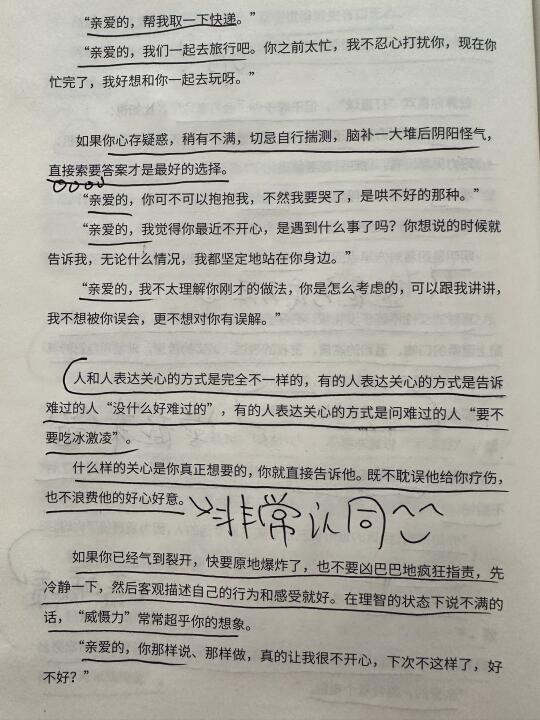 “亲爱的，帮我取一下快递。”
“亲爱的，我们一起去旅行吧。你之前太忙，我不忍心打扰你，现在你
忙完了，我好想和你一起去玩呀。”
如果你心存疑惑，稍有不满，切忌自行揣测，脑补一大堆后阴阳怪气，
直接索要答案才是最好的选择。
“亲爱的，你可不可以抱抱我，不然我要哭了，是哄不好的那种。”
“亲爱的，我觉得你最近不开心，是遇到什么事了吗？你想说的时候就
告诉我，无论什么情况，我都坚定地站在你身边。”
“亲爱的，我不太理解你刚才的做法，你是怎么考虑的，可以跟我讲讲，
我不想被你误会，更不想对你有误解。”
人和人表达关心的方式是完全不一样的，有的人表达关心的方式是告诉
难过的人“没什么好难过的”，有的人表达关心的方式是问难过的人“要不
要吃冰激凌”。
什么样的关心是你真正想要的，你就直接告诉他。既不耽误他给你疗伤，
也不浪费他的好心好意。
非常认同
如果你已经气到裂开，快要原地爆炸了，也不要凶巴巴地疯狂指责，先
冷静一下，然后客观描述自己的行为和感受就好。在理智的状态下说不满的
话，“威慑力”常常超乎你的想象。
“亲爱的，你那样说、那样做，真的让我很不开心，下次不这样了，好
不好？”